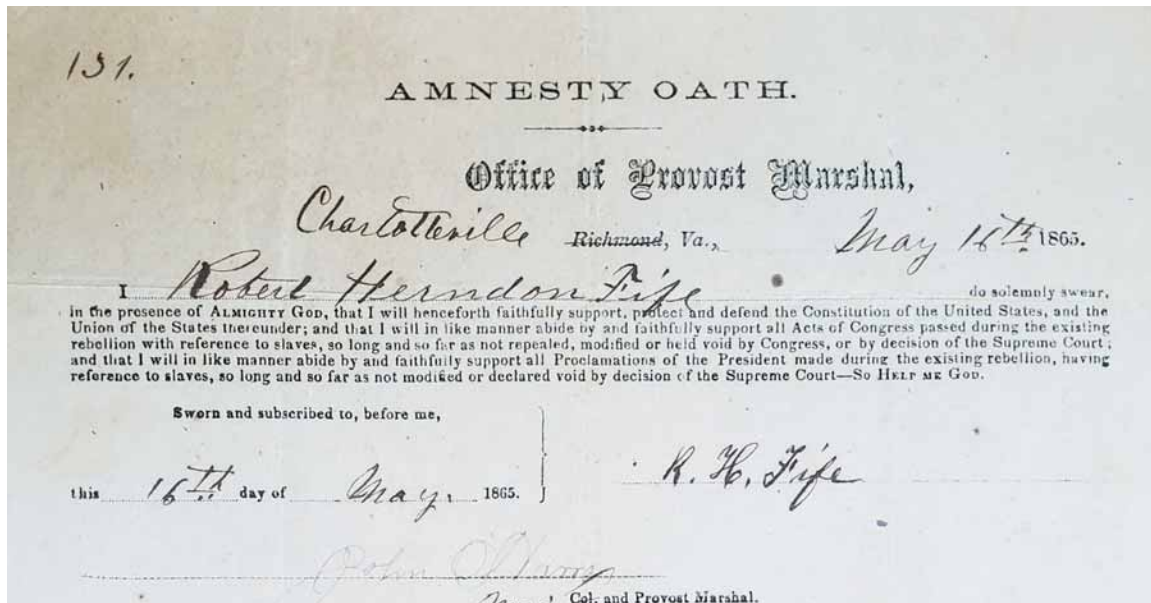 131.
AMNESTY OATH.
Office of Provost Marshal,
Charlotteville Richmond, Va., May 16th 1865.
I Robert Herndon Fife do solemnly swear,
in the presence of ALMIGHTY GOD, that I will henceforth faithfully support, protect and defend the Constitution of the United States, and the
Union of the States thereunder; and that I will in like manner abide by and faithfully support all Acts of Congress passed during the existing
rebellion with reference to slaves, so long and so far as not repealed, modified or held void by Congress, or by decision of the Supreme Court;
and that I will in like manner abide by and faithfully support all Proclamations of the President made during the existing rebellion, having
reference to slaves, so long and so far as not modified or declared void by decision of the Supreme Court—SO HELP ME GOD.
Sworn and subscribed to, before me,
R. H. Fife
this 16th day of May. 1865.
John
Col. and Provost Marshal.